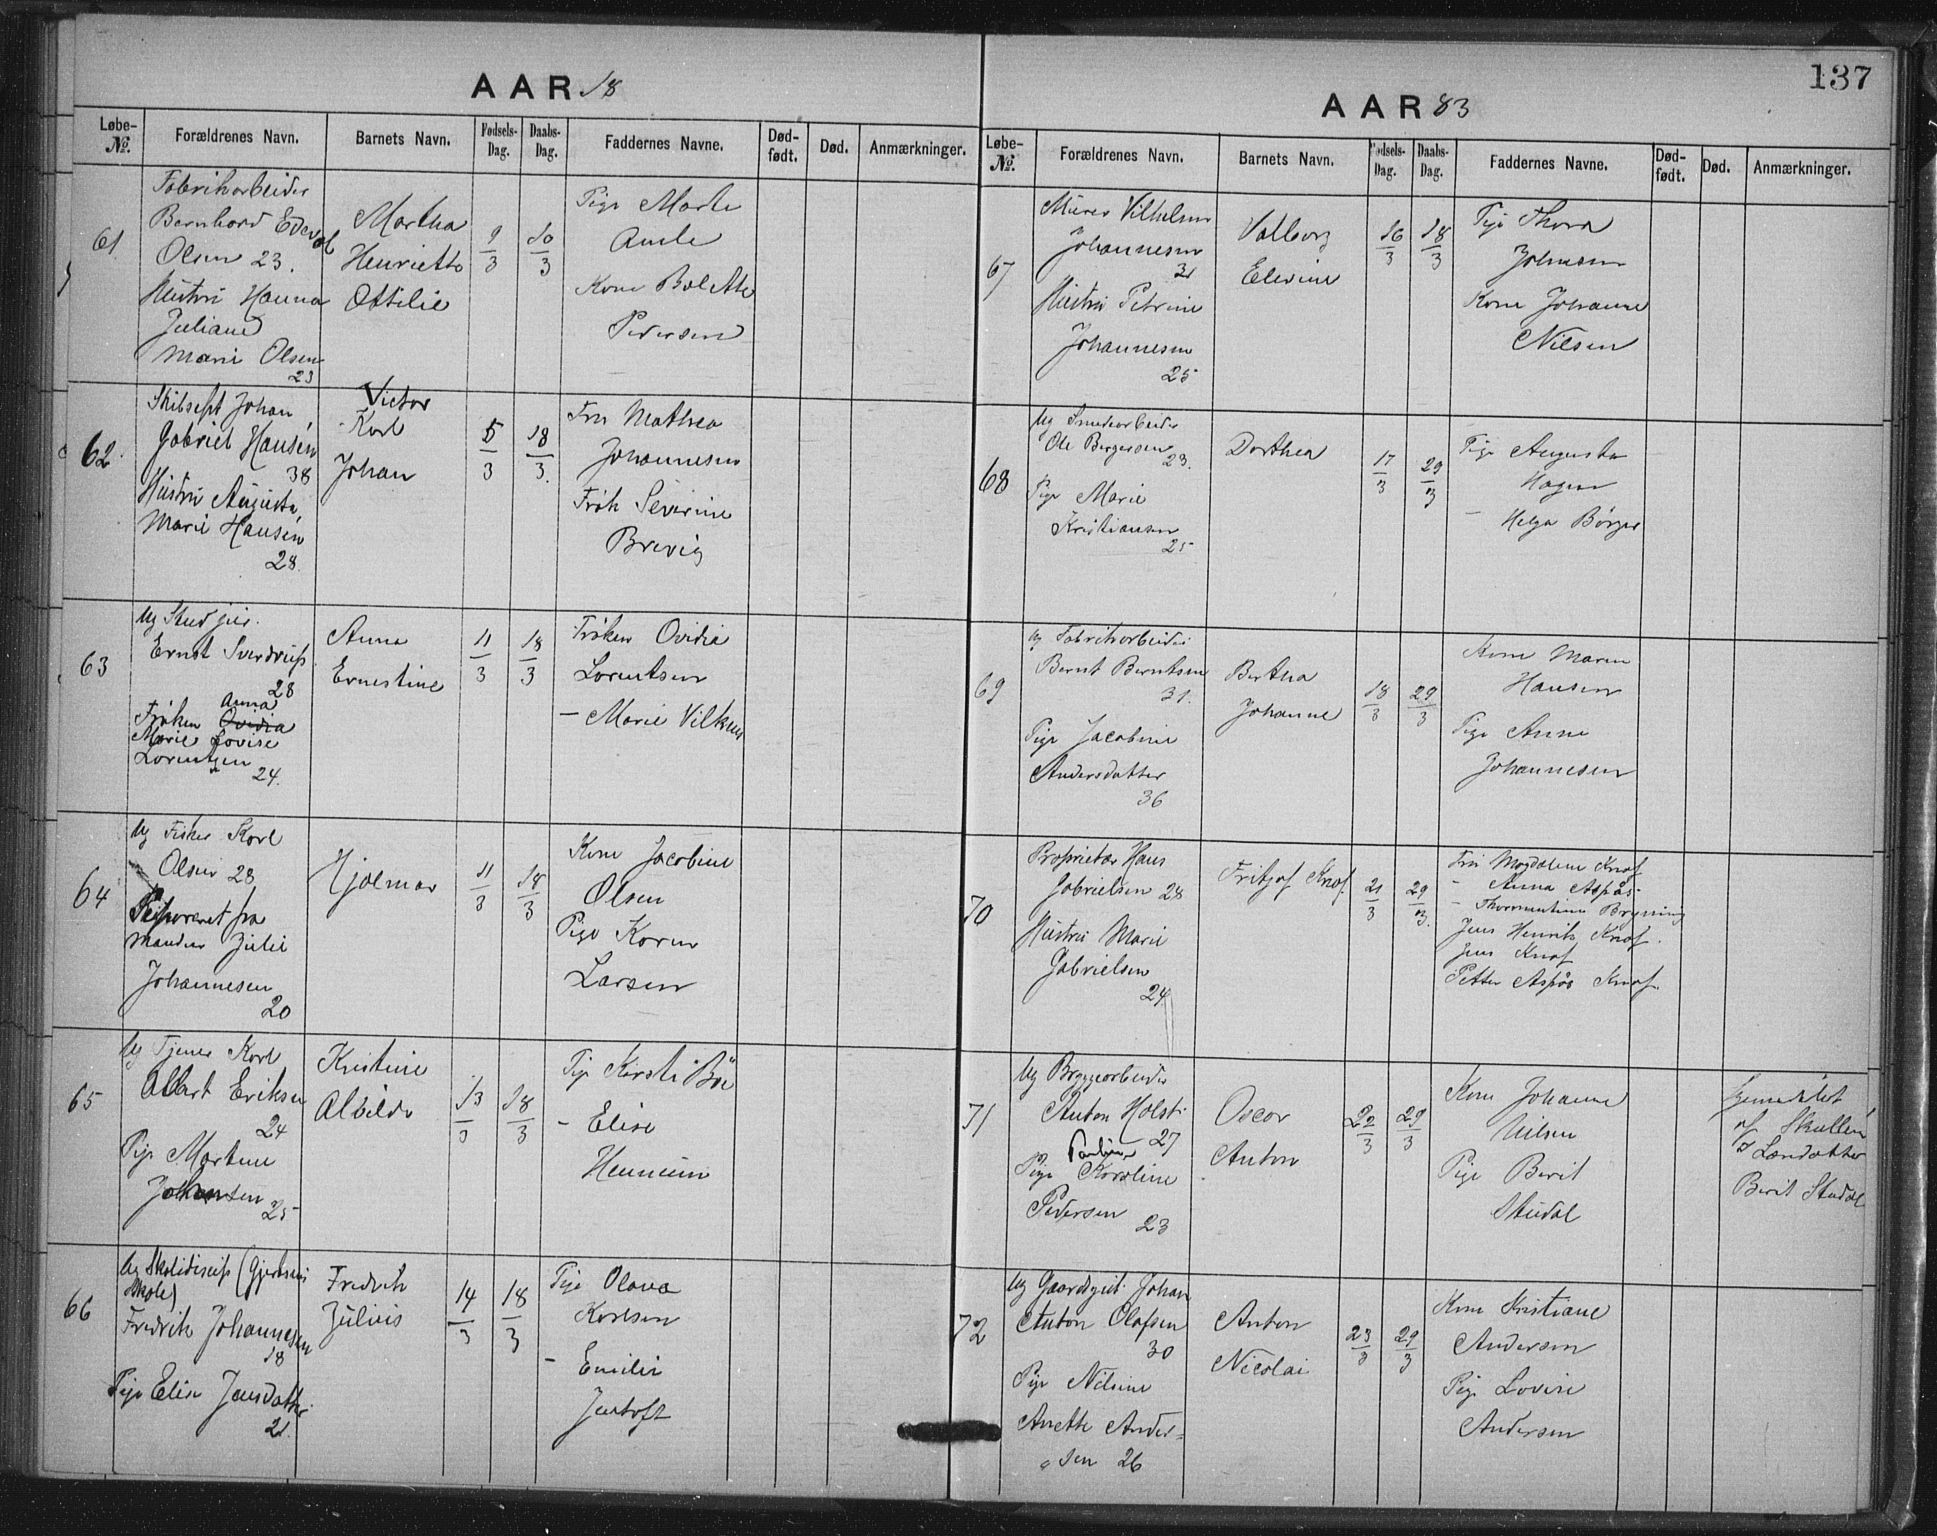 137
AAR 18
AAR 83
Løbe-No. Forældrenes Navn. Barnets Navn. Fødsels-Dag. Daabs-Dag. Faddernes Navne. Død-født. Død. Anmærkninger.
61
Fabrikarbeider
Bernhard Edevol
Olsen 23.
Hustru Hanna
Juliane
Marie Olsen
23
Martha
Henriette
Ottilie
9/3
10/3
Pige Marte
Amle
Kone Bolette
Pedersen
62.
Skibscpt Johan
Gabriel Hansen
38
Hustru Augusta
Marie Hansen
28.
Victor
Karl
Johan
5/3
18/3.
Fru Mathea
Johannesen
Frøk Severine
Brevig
63
Ug Stud jur.
Ernst Sverdrup
28
Anna
Frøken Ovidia
Marie Lovise
Lorentzen
24.
Anna
Ernestine
11/3
18/3
Frøken Ovidia
Lorentsen
– Marie Vilken
64
Ug Fisker Karl
Olsen 28
Separeret fra
Manden Julie
Johannesen
20
Hjalmar
11/3
18/3
Kone Jacobine
Olsen
Pige Karen
Larsen
65
Ug Tjener Karl
Albert Eriksen
24
Pige Martine
Johansen
25
Kristine
Alvilde
13/3
18/3
Pige Kersti Bøe
– Elise
Hennum
66
Ug Skolediscip (Gjertsens
Skole)
Fredrik Johannesen
18
Pige Elise Jensdatter
21
Fredrik
Julius
14/3
18/3
Pige Olava
Karlsen
– Emilie
Jentoft
Løbe-No. Forældrenes Navn. Barnets Navn. Fødsels-Dag. Daabs-Dag. Faddernes Navne. Død-født. Død. Anmærkninger.
67
Murer Vilhelm
Johannesen
31
Hustru Petrine
Johannesen
25
Valborg
Elevine
16/3
18/3
Pige Thora
Johnsen
Kone Johanne
Nilsen
68
Ug Smedearbeider
Ole Bergersen
23.
Pige Marie
Kristiansen
25
Dorthea
17/3
29/3
Pige Augusta
Hagen
– Helga Börger
69
Ug Fabrikarbeider
Bernt Berntsen
31.
Pige Jacobine
Andersdatter
36
Bertha
Johanne
18/3
29/3
Kone Maren
Hansen
Pige Anne
Johannesen
70
Proprietær Hans
Gabrielsen 28
Hustru Marie
Gabrielsen
24
Fritjof Knof
21/3
29/3.
Fru Magdalene Knof
– Anna Aspås
– Thormentine Bryning
Jens Henrik Knof.
Jens Knof
Petter Aspås Knof.
71
Ug Bryggearbeider
Anton Holst
27
Pauline
Pige Karoline
Pedersen 23
Oscar
Anton
22/3
29/3
Kone Johanne
Nilsen
Pige Berit
Studal
hjemedøbt
af
Berit Studal
72
Ug Gaardgut. Johan
Anton Olafsen
30
Pige Nilsine
Anette Ander-
sen 26
Anton
Nicolai
23/3
29/3
Kone Kristiane
Andersen
Pige Lovise
Andersen